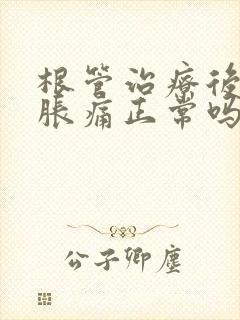 根管治療後
脹痛正常吗
公子卿塵